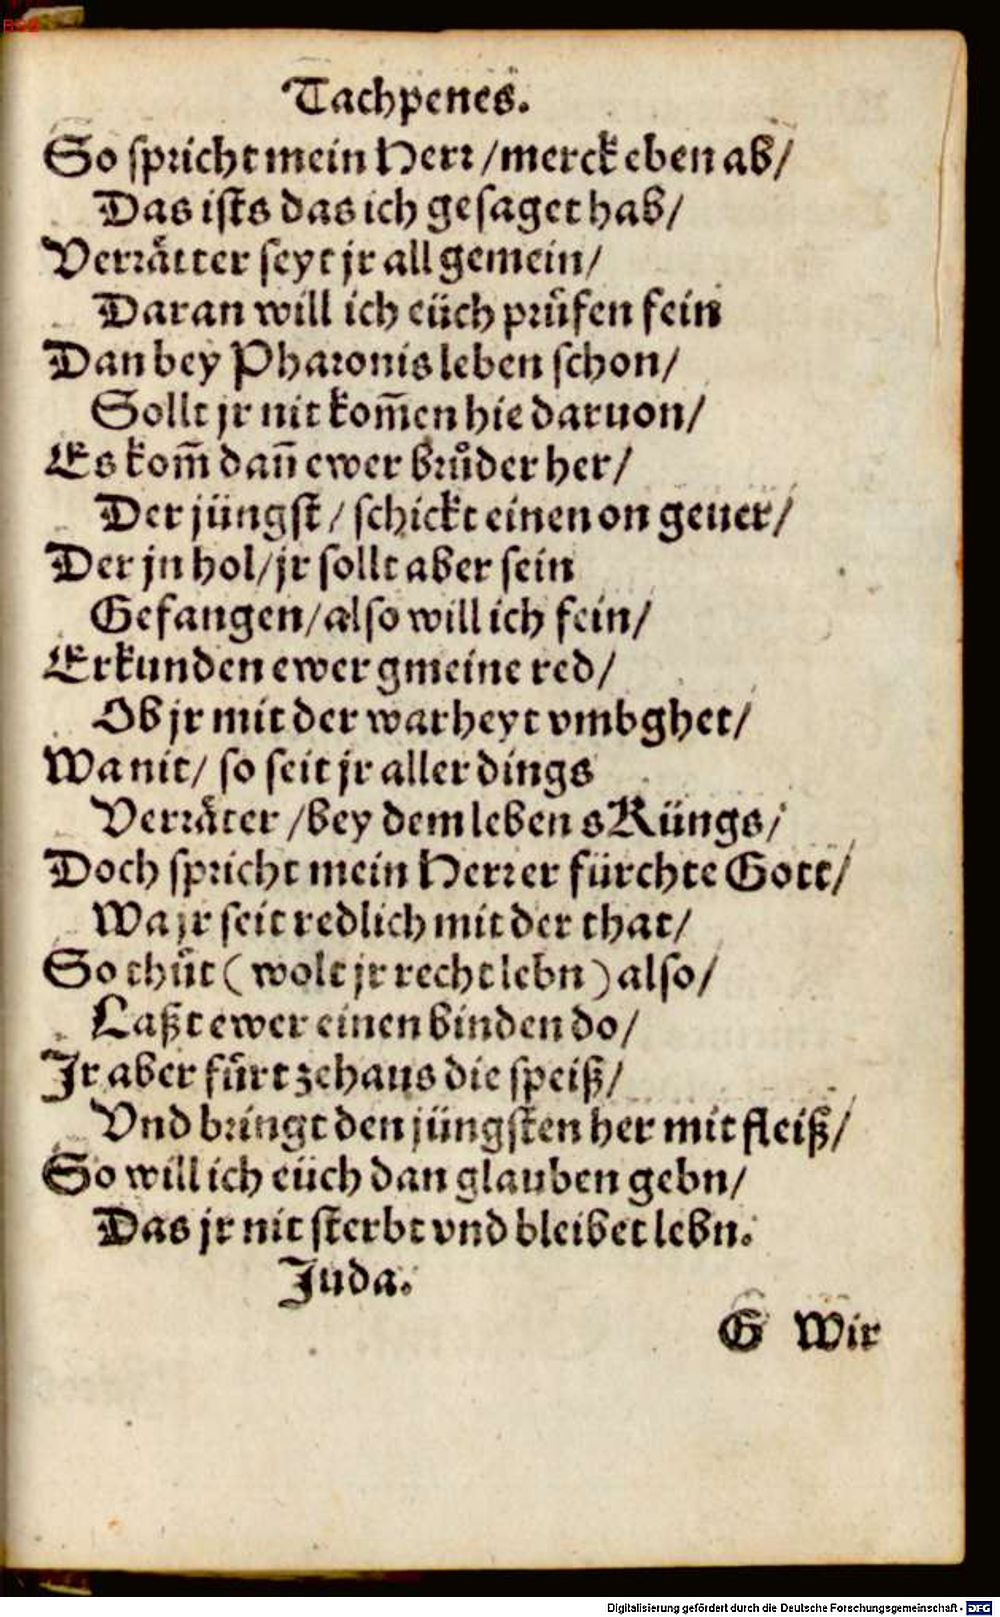 BSB
Tachpenes.
So spricht mein Herr / merck eben ab /
Das ists das ich gesaget hab /
Verrätter seyt jr all gemein /
Daran will ich eüch prüfen fein
Dan bey Pharonis leben schon /
Sollt jr nit kom̄en hie daruon /
Es kom̄ dan̄ ewer brůder her /
Der jüngst / schickt einen on geuer /
Der jn hol / jr sollt aber sein
Gefangen / also will ich fein /
Erkunden ewer gmeine red /
Ob jr mit der warheyt vmbghet /
Wa nit / so seit jr aller dings
Verräter / bey dem leben s Küngs /
Doch spricht mein Herr er fürchte Gott /
Wa jr seit redlich mit der that /
So thüt ( wolt jr recht lebn ) also /
Laßt ewer einen binden do /
Jr aber fürt zehaus die speiß /
Vnd bringt den jüngsten her mit fleiß /
So will ich eüch dan glauben gebn /
Das jr nit sterbt vnd bleibet lebn.
Juda.
G Wir
Digitalisierung gefördert durch die Deutsche Forschungsgemeinschaft - DFG